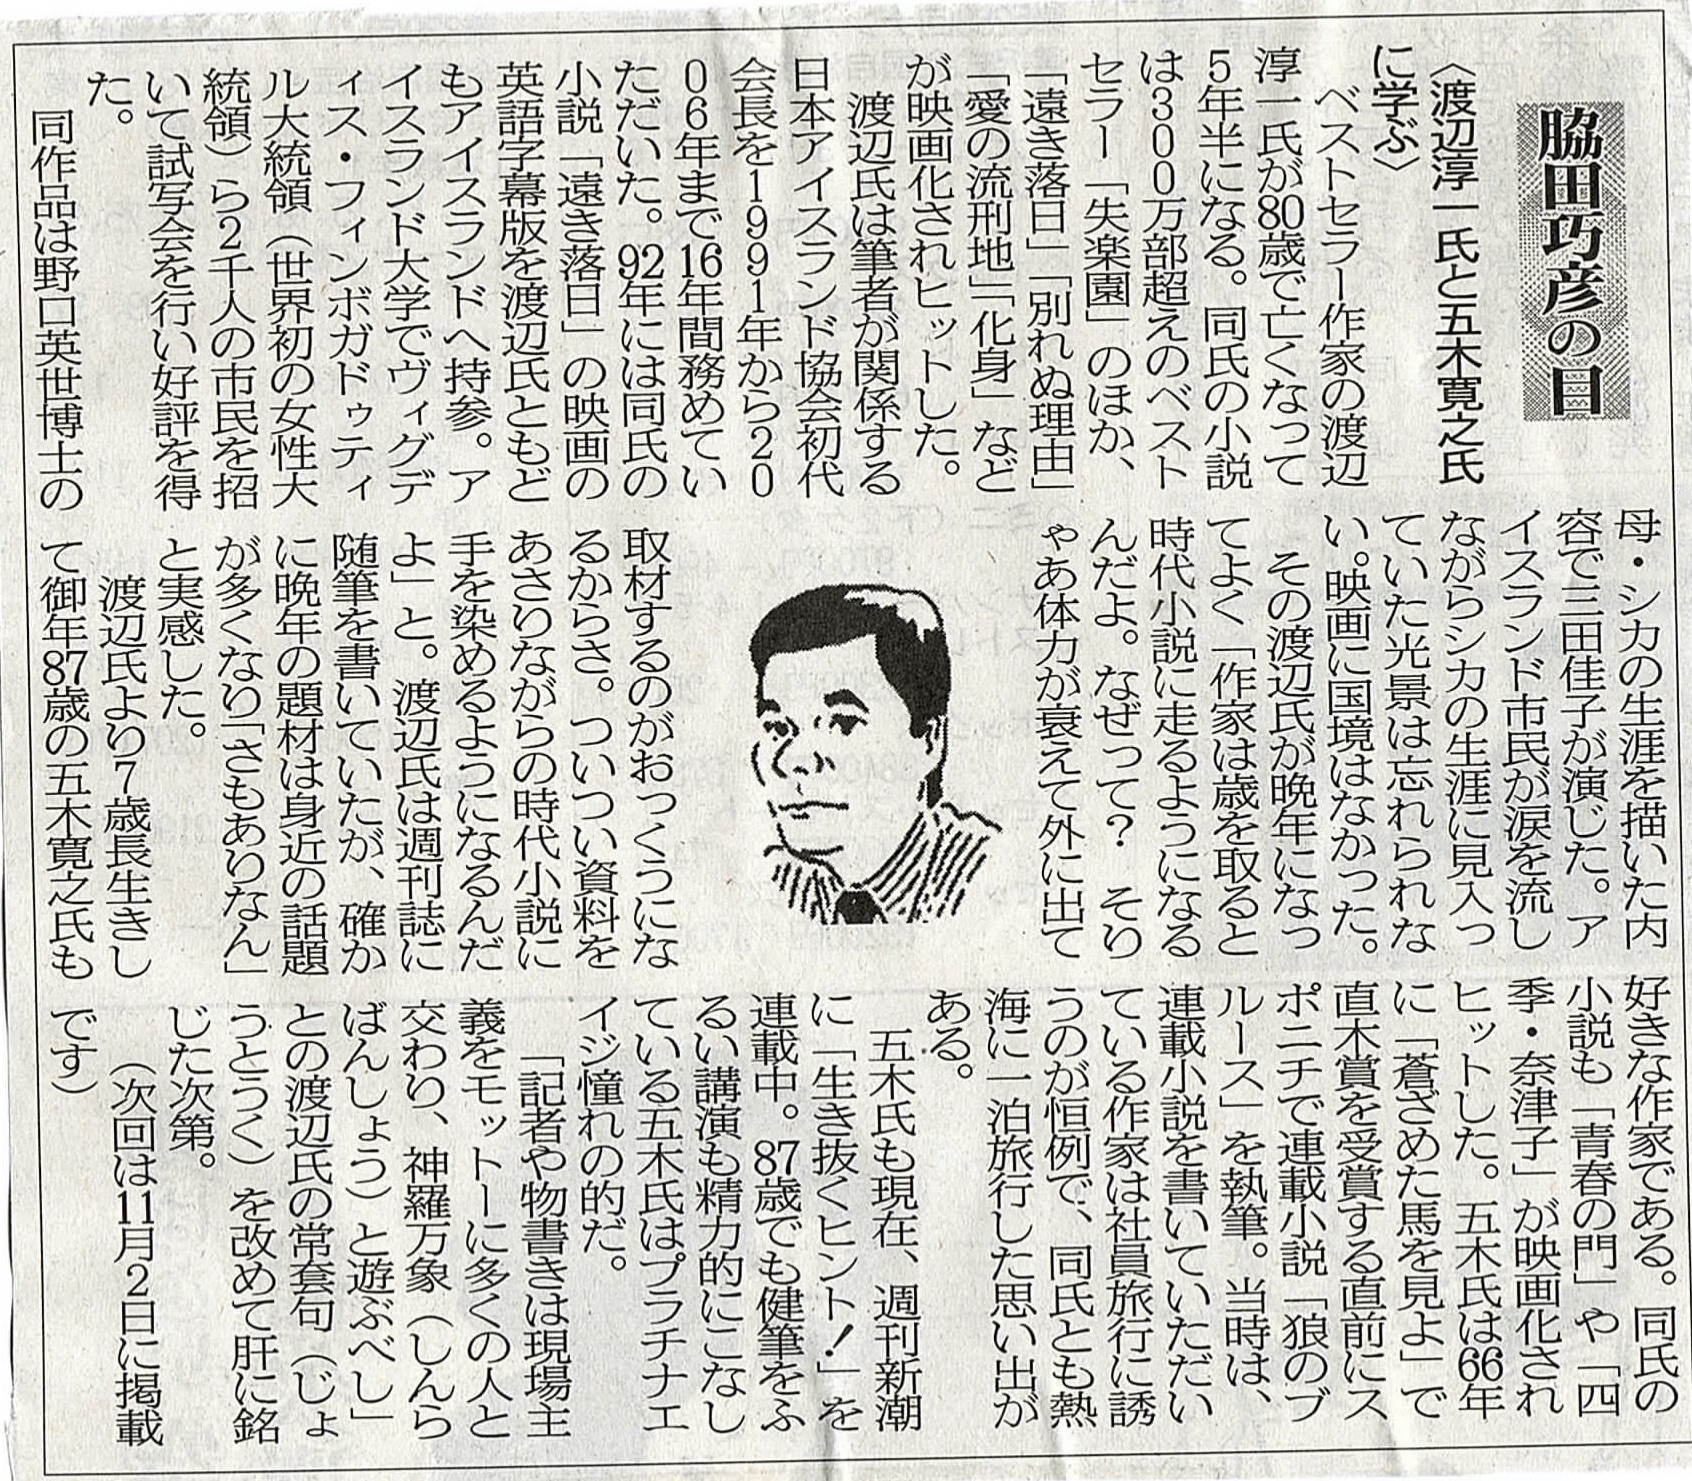 脇田巧彦の目
〈渡辺淳一氏と五木寛之氏
に学ぶ〉
ベストセラー作家の渡辺
淳一氏が80歳で亡くなって
5年半になる。同氏の小説
は300万部超えのベスト
セラー「失楽園」のほか、
「遠き落日」「別れぬ理由」
「愛の流刑地」「化身」など
が映画化されヒットした。
渡辺氏は筆者が関係する
日本アイスランド協会初代
会長を1991年から20
06年まで16年間務めてい
ただいた。92年には同氏の
小説「遠き落日」の映画の
英語字幕版を渡辺氏ともど
もアイスランドへ持参。ア
イスランド大学でヴィグデ
ィス・フィンボガドゥティ
ル大統領（世界初の女性大
統領）ら2千人の市民を招
いて試写会を行い好評を得
た。
同作品は野口英世博士の
母・シカの生涯を描いた内
容で三田佳子が演じた。ア
イスランド市民が涙を流し
ながらシカの生涯に見入っ
ていた光景は忘れられな
い。映画に国境はなかった。
その渡辺氏が晩年になっ
てよく「作家は歳を取ると
時代小説に走るようになる
んだよ。なぜって？　そり
ゃあ体力が衰えて外に出て
取材するのがおっくうにな
るからさ。ついつい資料を
あさりながらの時代小説に
手を染めるようになるんだ
よ」と。渡辺氏は週刊誌に
随筆を書いていたが、確か
に晩年の題材は身近の話題
が多くなり「さもありなん」
と実感した。
渡辺氏より7歳長生きし
て御年87歳の五木寛之氏も
好きな作家である。同氏の
小説も「青春の門」や「四
季・奈津子」が映画化され
ヒットした。五木氏は66年
に「蒼ざめた馬を見よ」で
直木賞を受賞する直前にス
ポニチで連載小説「狼のブ
ルース」を執筆。当時は、
連載小説を書いていただい
ている作家は社員旅行に誘
うのが恒例で、同氏とも熱
海に一泊旅行した思い出が
ある。
五木氏も現在、週刊新潮
に「生き抜くヒント！」を
連載中。87歳でも健筆をふ
るい講演も精力的にこなし
ている五木氏はプラチナエ
イジ憧れの的だ。
「記者や物書きは現場主
義をモットーに多くの人と
交わり、神羅万象（しんら
ばんしょう）と遊ぶべし」
との渡辺氏の常套句（じょ
うとうく）を改めて肝に銘
じた次第。
（次回は11月2日に掲載
です）